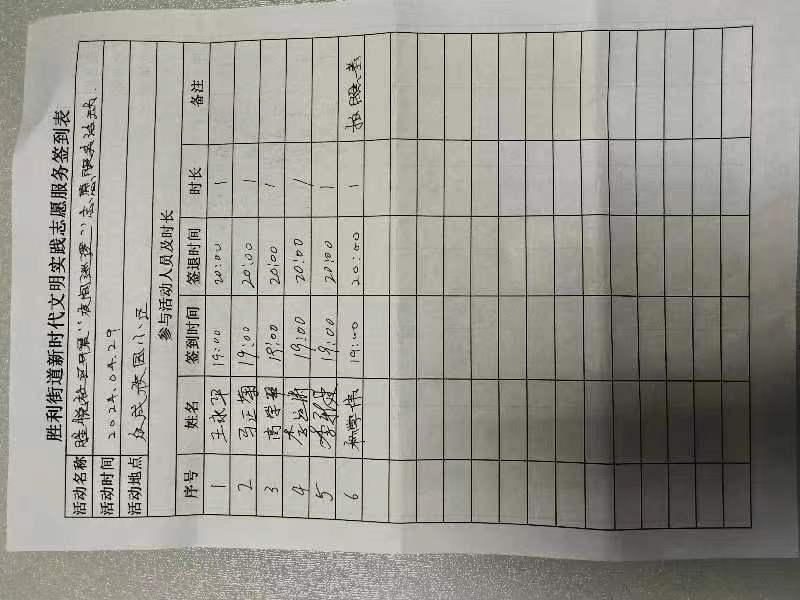 胜利街道新时代文明实践志愿服务签到表
活动名称 胜悦社区开展“夜间巡逻”志愿服务活动.
活动时间 2024.04.29
活动地点 众成夜园小区
参与活动人员及时长
序号 姓名 签到时间 签退时间 时长 备注
1 王永军 19:00 20:00 1
2 马正翔 19:00 20:00 1
3 高学 19:00 20:00 1
4 李 19:00 20:00 1
5 李 19:00 20:00 1
6 学伟 19:00 20:00 1 拍照